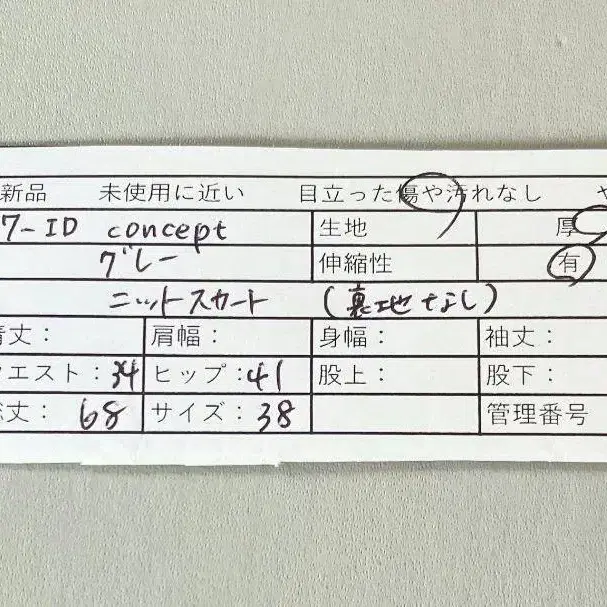 新品 未使用に近い 目立った傷や汚れなし や
7-ID concept 生地 厚
グレー 伸縮性 有
ニットスカート (裏地なし)
着丈: 肩幅: 身幅: 袖丈:
ウエスト:34 ヒップ:41 股上: 股下:
総丈: 68 サイズ: 38 管理番号